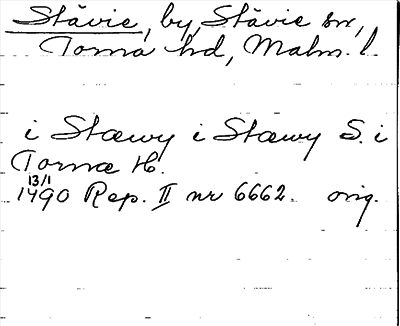 Stävie, by, Stävie sn,
Torna hd, Malm. l.
i Stæwy i Stæwy S. i
Tornæ H.
13/1
1490 Rep. II nr 6662. orig.